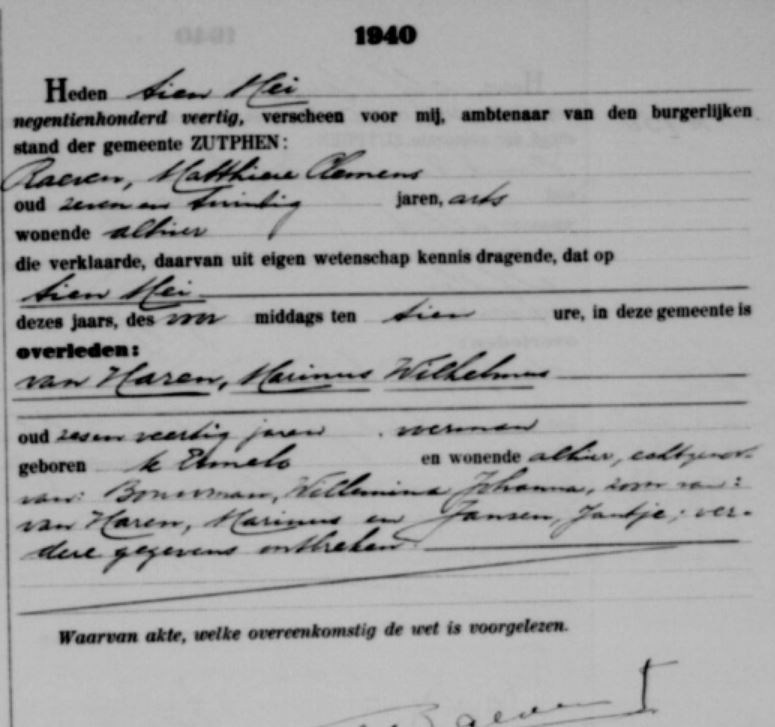 1940
Heden tien Mei
negentienhonderd veertig, verscheen voor mij, ambtenaar van den burgerlijken
stand der gemeente ZUTPHEN:
Raeven, Matthieu Clemens
oud zeven en twintig jaren, arts
wonende alhier
die verklaarde, daarvan uit eigen wetenschap kennis dragende, dat op
tien Mei
dezes jaars, des voor middags ten tien ure, in deze gemeente is
overleden:
van Haren, Marinus Wilhelmus
oud zes en veertig jaren
geboren te Ermelo en wonende alhier, echtgenoot
van: Bouwman, Willemina Johanna, zoon van:
van Haren, Marinus en Jansen, Jantje; ver-
dere gegevens ontbreken.
Waarvan akte, welke overeenkomstig de wet is voorgelezen.